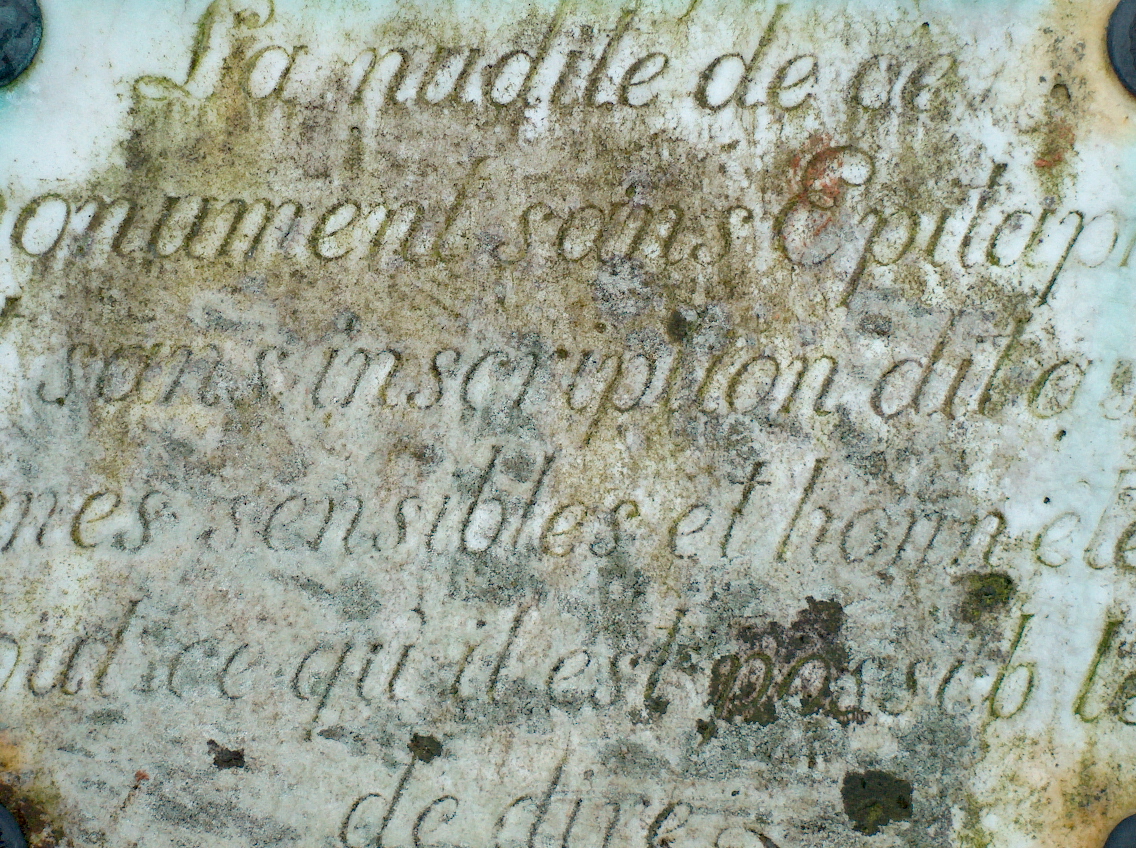 La nudité de ce
onument sans Epitaph
sans inscription dit aux
mes sensibles et honnete
oud ce qu'il est possible
de dire